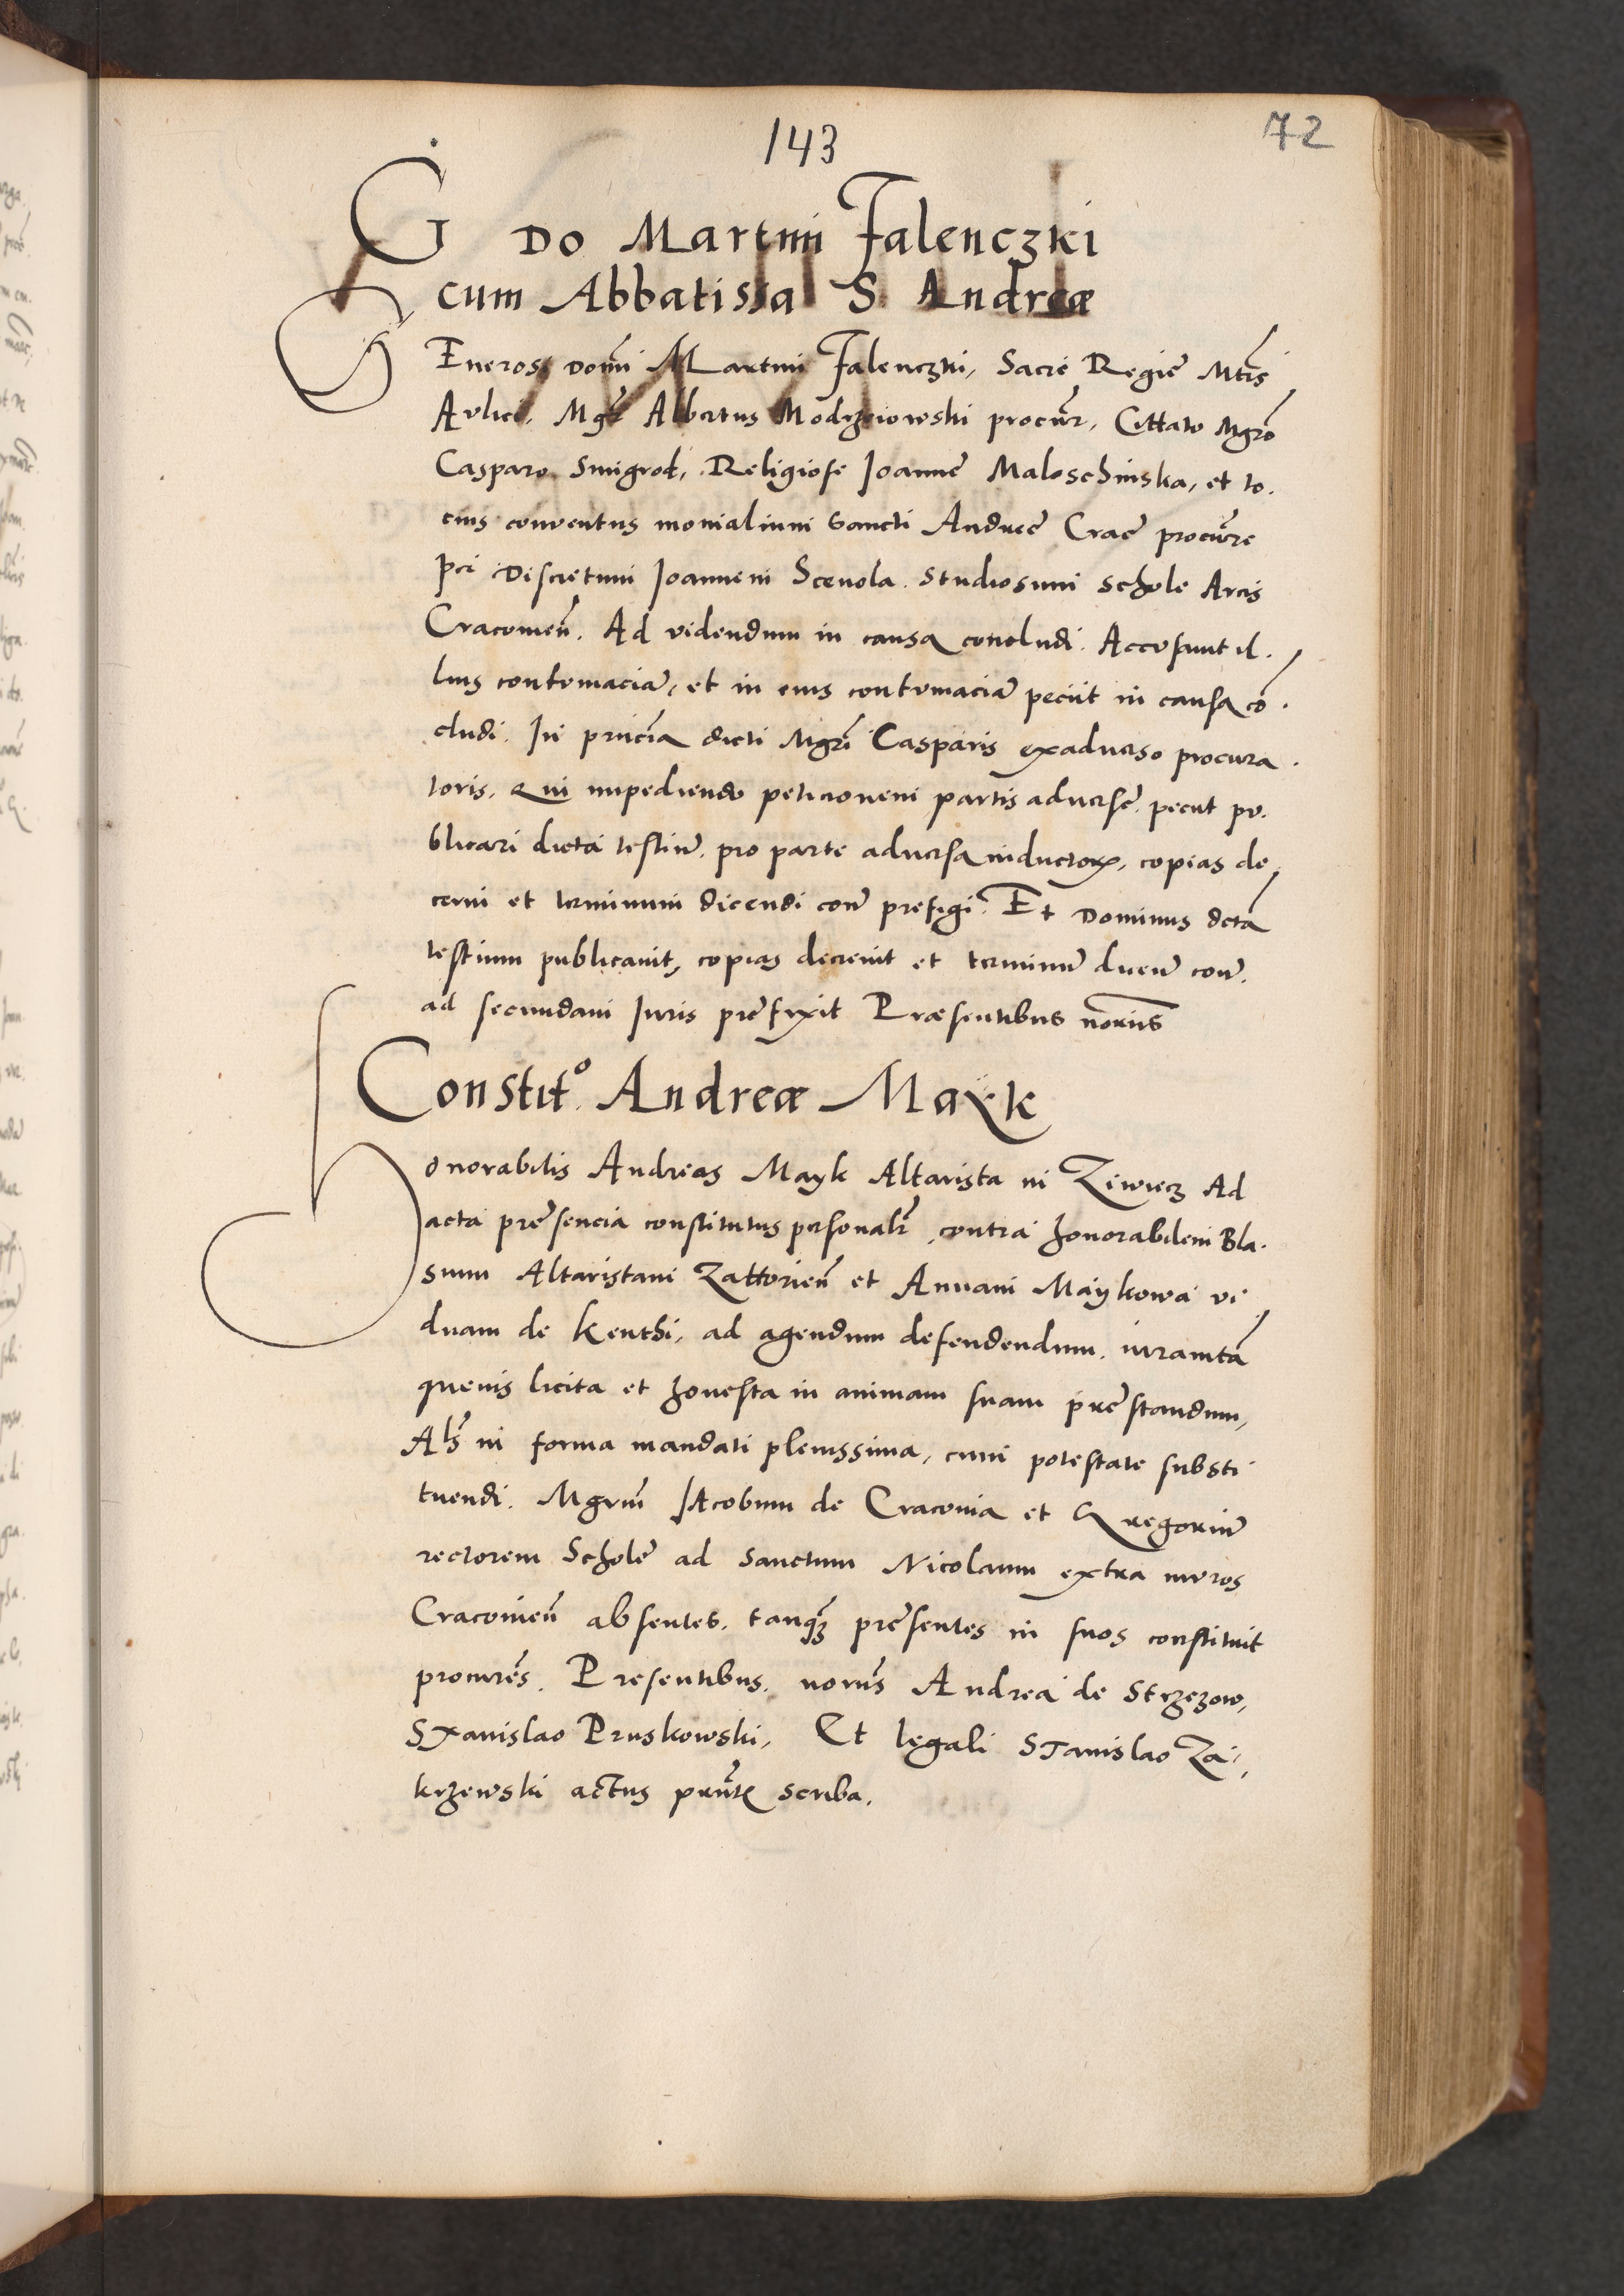 143
72
G Do Martini Falenczki
cum Abbatissa S. Andreæ
GEnerosi domi Martini Falenczki, Sacre Regie Mtis
Aulici, Mgr Albertus Modrzewowski procur, Cittato Mgro
Casparo Smigrod, Religiose Joanne Maloschinska, et to.
cius conventus monialium Sancti Andree Crac procure
pti Discretum Joannem Scevola. Studiosum Schole Arcis
Cracovien. Ad videndum in causa concludi. Accusavit il.
lius contumaciã, et in eius contumaciã peciit in causa cõ.
cludi. In pñcia dicti Mgri Casparis exadverso procura.
toris, Qui impediendo peticionem partis adverse, peciit pu.
blicari dicta testiũ, pro parte adversa inductorꝝ, copias de
cerni et terminum dicendi con prefigi. Et Dominus dcta
testium publicavit, copias decrevit et terminũ dicen con.
ad secundam Juris prefixit Præsentibus noriis
Constit.º Andreæ Mayk
Honorabilis Andreas Mayk Altarista in Ziwiecz Ad
acta presencia constitutus personalr, contra honorabilem Bla.
sium Altaristam Zattorien et Annam Maykowa vi
duam de Kenthi, ad agendum defendendum, iuramta
quevis licita et honesta in animam suam prestandum,
Als in forma mandati plenissima, cum potestate substi
tuendi. Mgrum Jacobum de Cracovia et Gregoriũ
rectorem Schole ad Sanctum Nicolaum extra muros
Cracovien absentes, tanqꝫ presentes in suos constituit
procures. Presentibus, noriis Andrea de Strzezow,
Stanislao Pruskowski, Et legali Stanislao Za,
krzewski actus prntis scriba.